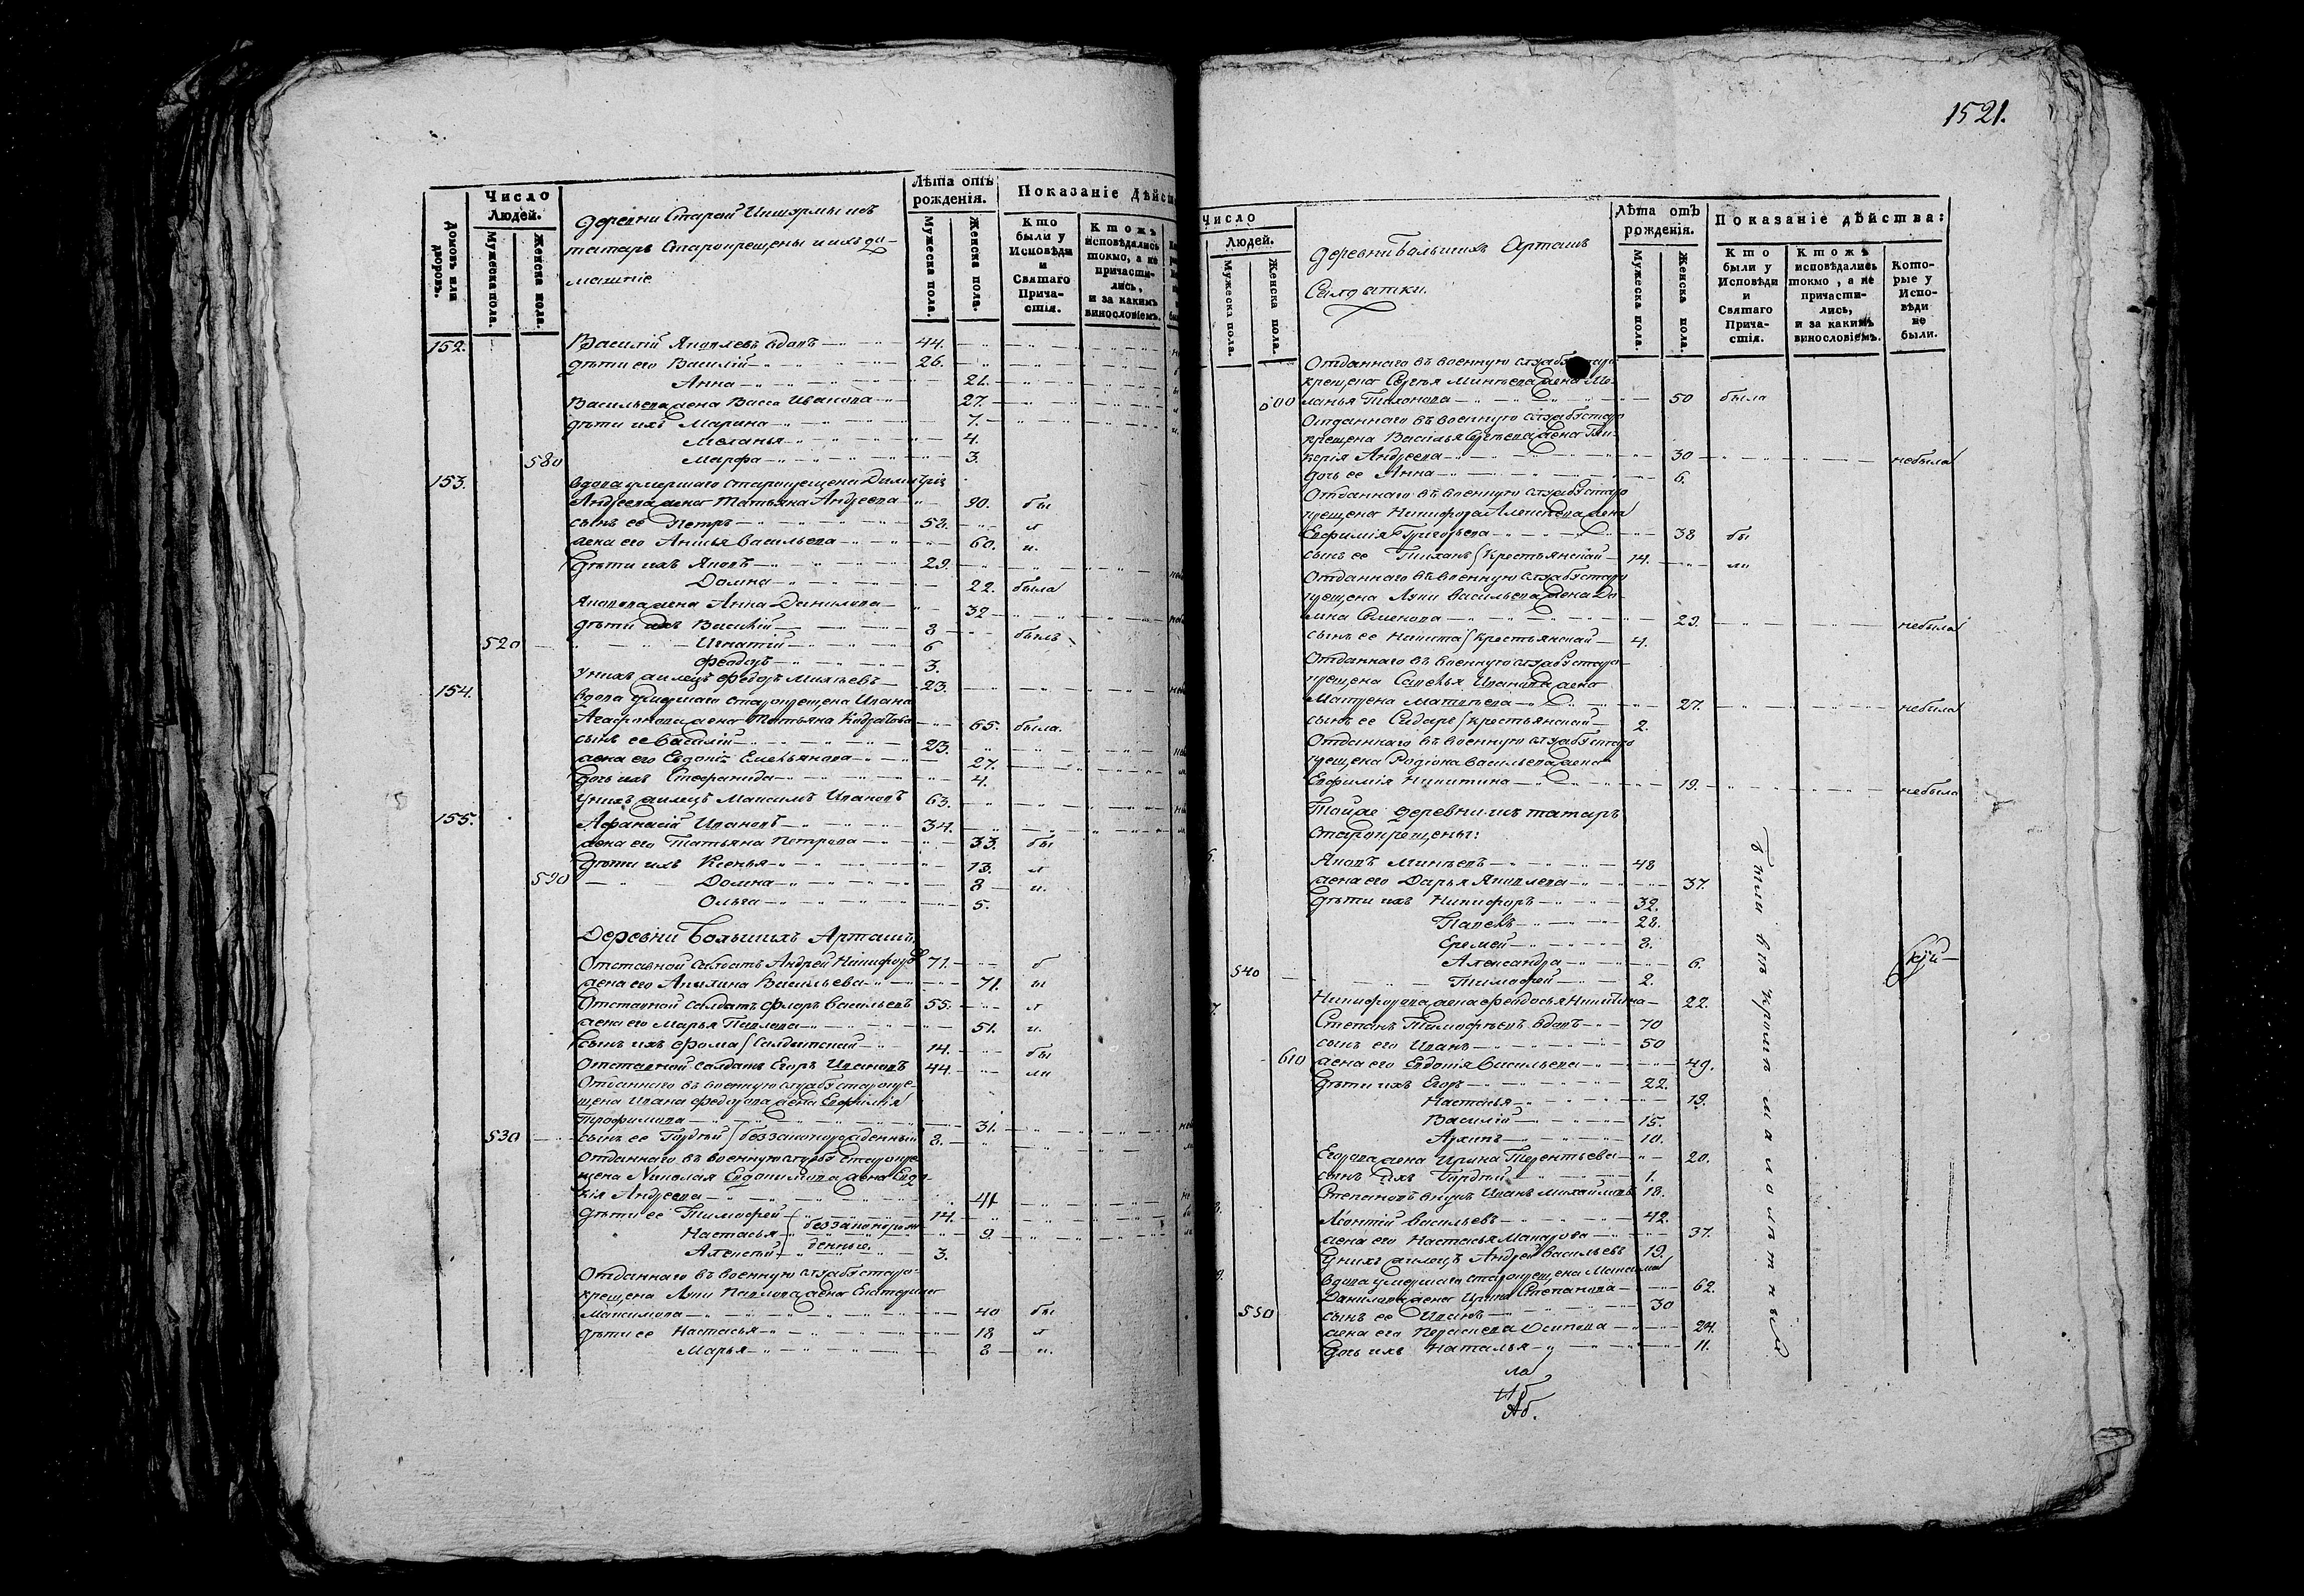 1521.
Число
Людей.
Домовъ или дворовъ.
Мужеска пола.
Женска пола.
деревни Старой Икшурмы изъ
татаръ старокрещены и ихъ до-
машніе
Лѣта отъ
рожденія.
Мужеска пола.
Женска пола.
Показаніе Дѣйст
Кто
были у
Исповѣди
и
Святаго
Прича-
стія.
Ктожъ
исповѣдались
токмо, а не
причасти-
лись,
и за какимъ
винословіемъ.
152. Василій Яковлевъ вдовъ 44.
дѣти его Василій 26.
Анна 21.
Васильева жена Васса Иванова 27.
дѣти ихъ Марина 7.
Меланья 4.
580 Марфа 3.
153. вдова умершаго старокрещена Димитрія
Андреева жена Татьяна Андреева 90. бы
сынъ ее Петръ 58. л
жена его Анисья Васильева 60. и.
дѣти ихъ Яковъ 29.
Домна 22. была
Яковова жена Анна Данилова 32
дѣти ихъ Василій 8 былъ
520 Игнатій 6
Феодоръ 3.
у нихъ жилецъ Федоръ 23.
154. вдова умершаго старокрещена Ивана
Агафонова жена Татьяна 65. была.
сынъ ее Василій 23.
жена его Евдокія Емельянова 27.
дочь ихъ Стефанида 4.
у нихъ жилецъ Максимъ Ивановъ 63.
155. Афанасій Ивановъ 34.
жена его Татьяна Петрова 33. бы
дѣти ихъ Ксенья 13. л
590 Домна 8 и.
Ольга 5.
Деревни Большихъ Арташъ
Отставной салдатъ Андрей Никифоровъ 71. б
жена его Акилина Васильева 71. ы
Отставной салдатъ Флоръ Васильевъ 55. л
жена его Марья Павлова 51. и.
сынъ ихъ Фома салдатской 14. бы
Отставной салдатъ Егоръ Ивановъ 44. ли
Отданнаго въ военную службу старокре-
щена Ивана Федорова жена Евфимія
Трофимова 31.
530 сынъ ее Гордѣй беззаконорожденный 8.
Отданнаго въ военную службу старокре
щена Николая Евдокимова жена Евдо
кія Андреева 41
дѣти ее Тимофей 14.
Настасья беззаконорож 9.
Алексѣй денные 3.
Отданнаго въ военную службу старо-
крещена Луки Павлова жена Екатерина
Максимова 40 бы
дѣти ее Настасья 18 л
Марья 8 и.
Число
Людей.
Мужеска пола.
Женска пола.
деревни Большихъ Арташъ
Салдатки.
Лѣта отъ
рожденія.
Мужеска пола.
Женска пола.
Показаніе дѣйства:
Кто
были у
Исповѣди
и
Святаго
Прича-
стія.
Ктожъ
исповѣдались
токмо, а не
причасти-
лись,
и за какимъ
винословіемъ.
Кото-
рые у
Испо-
вѣди
не
были.
Отданнаго въ военную службу старо
крещена Сергѣя Минѣева жена Ме-
600 ланья Тихонова 50 была
Отданнаго въ военную службу старо
крещена Василья Сергѣева жена Гли-
керія Андреева 30 небыла
дочь ее Анна 6.
Отданнаго въ военную службу старо
крещена Никифора Алексѣева жена
Евфимія Григорьева 38 бы
сынъ ее Тихонъ крестьянской 14. ли
Отданнаго въ военную службу старо
крещена Луки Васильева жена До-
мна Семенова 29. небыла
сынъ ее Никита крестьянской 4.
Отданнаго въ военную службу старо-
крещена Савелья Иванова жена
Матрена Матвѣева 27. небыла
сынъ ее Сидоръ крестьянской 2.
Отданнаго въ военную службу старо
крещена Родіона Васильева жена
Евфимія Никитина 19. небыла
Тойже деревни изъ татаръ
старокрещены:
Яковъ Минѣевъ 48
жена его Дарья Яковлева 37.
дѣти ихъ Никифоръ 32.
Павелъ 28.
Еремей 8.
Александра 6.
540 Тимофей 2.
Никифорова жена Феодосья Никитина 22.
Степанъ Тимофѣевъ вдовъ 70
сынъ его Иванъ 50
610 жена его Евдокія Васильева 49.
дѣти ихъ Егоръ 22.
Настасья 19.
Василій 15.
Архипъ 10.
Егорова жена Ирина Терентьева 20.
сынъ ихъ Гордѣй 1.
Степановъ внукъ Иванъ Михайловъ 18.
Леонтій Васильевъ 42.
жена его Настасья Макарова 37.
у нихъ жилецъ Андрей Васильевъ 19.
вдова умершаго старокрещена Максима
Данилова жена Ирина Степанова 62.
550 сынъ ее Иванъ 30
жена его Парасковья Осипова 24.
дочь ихъ Наталья 11.
были всѣ кромѣ малолѣтныхъ